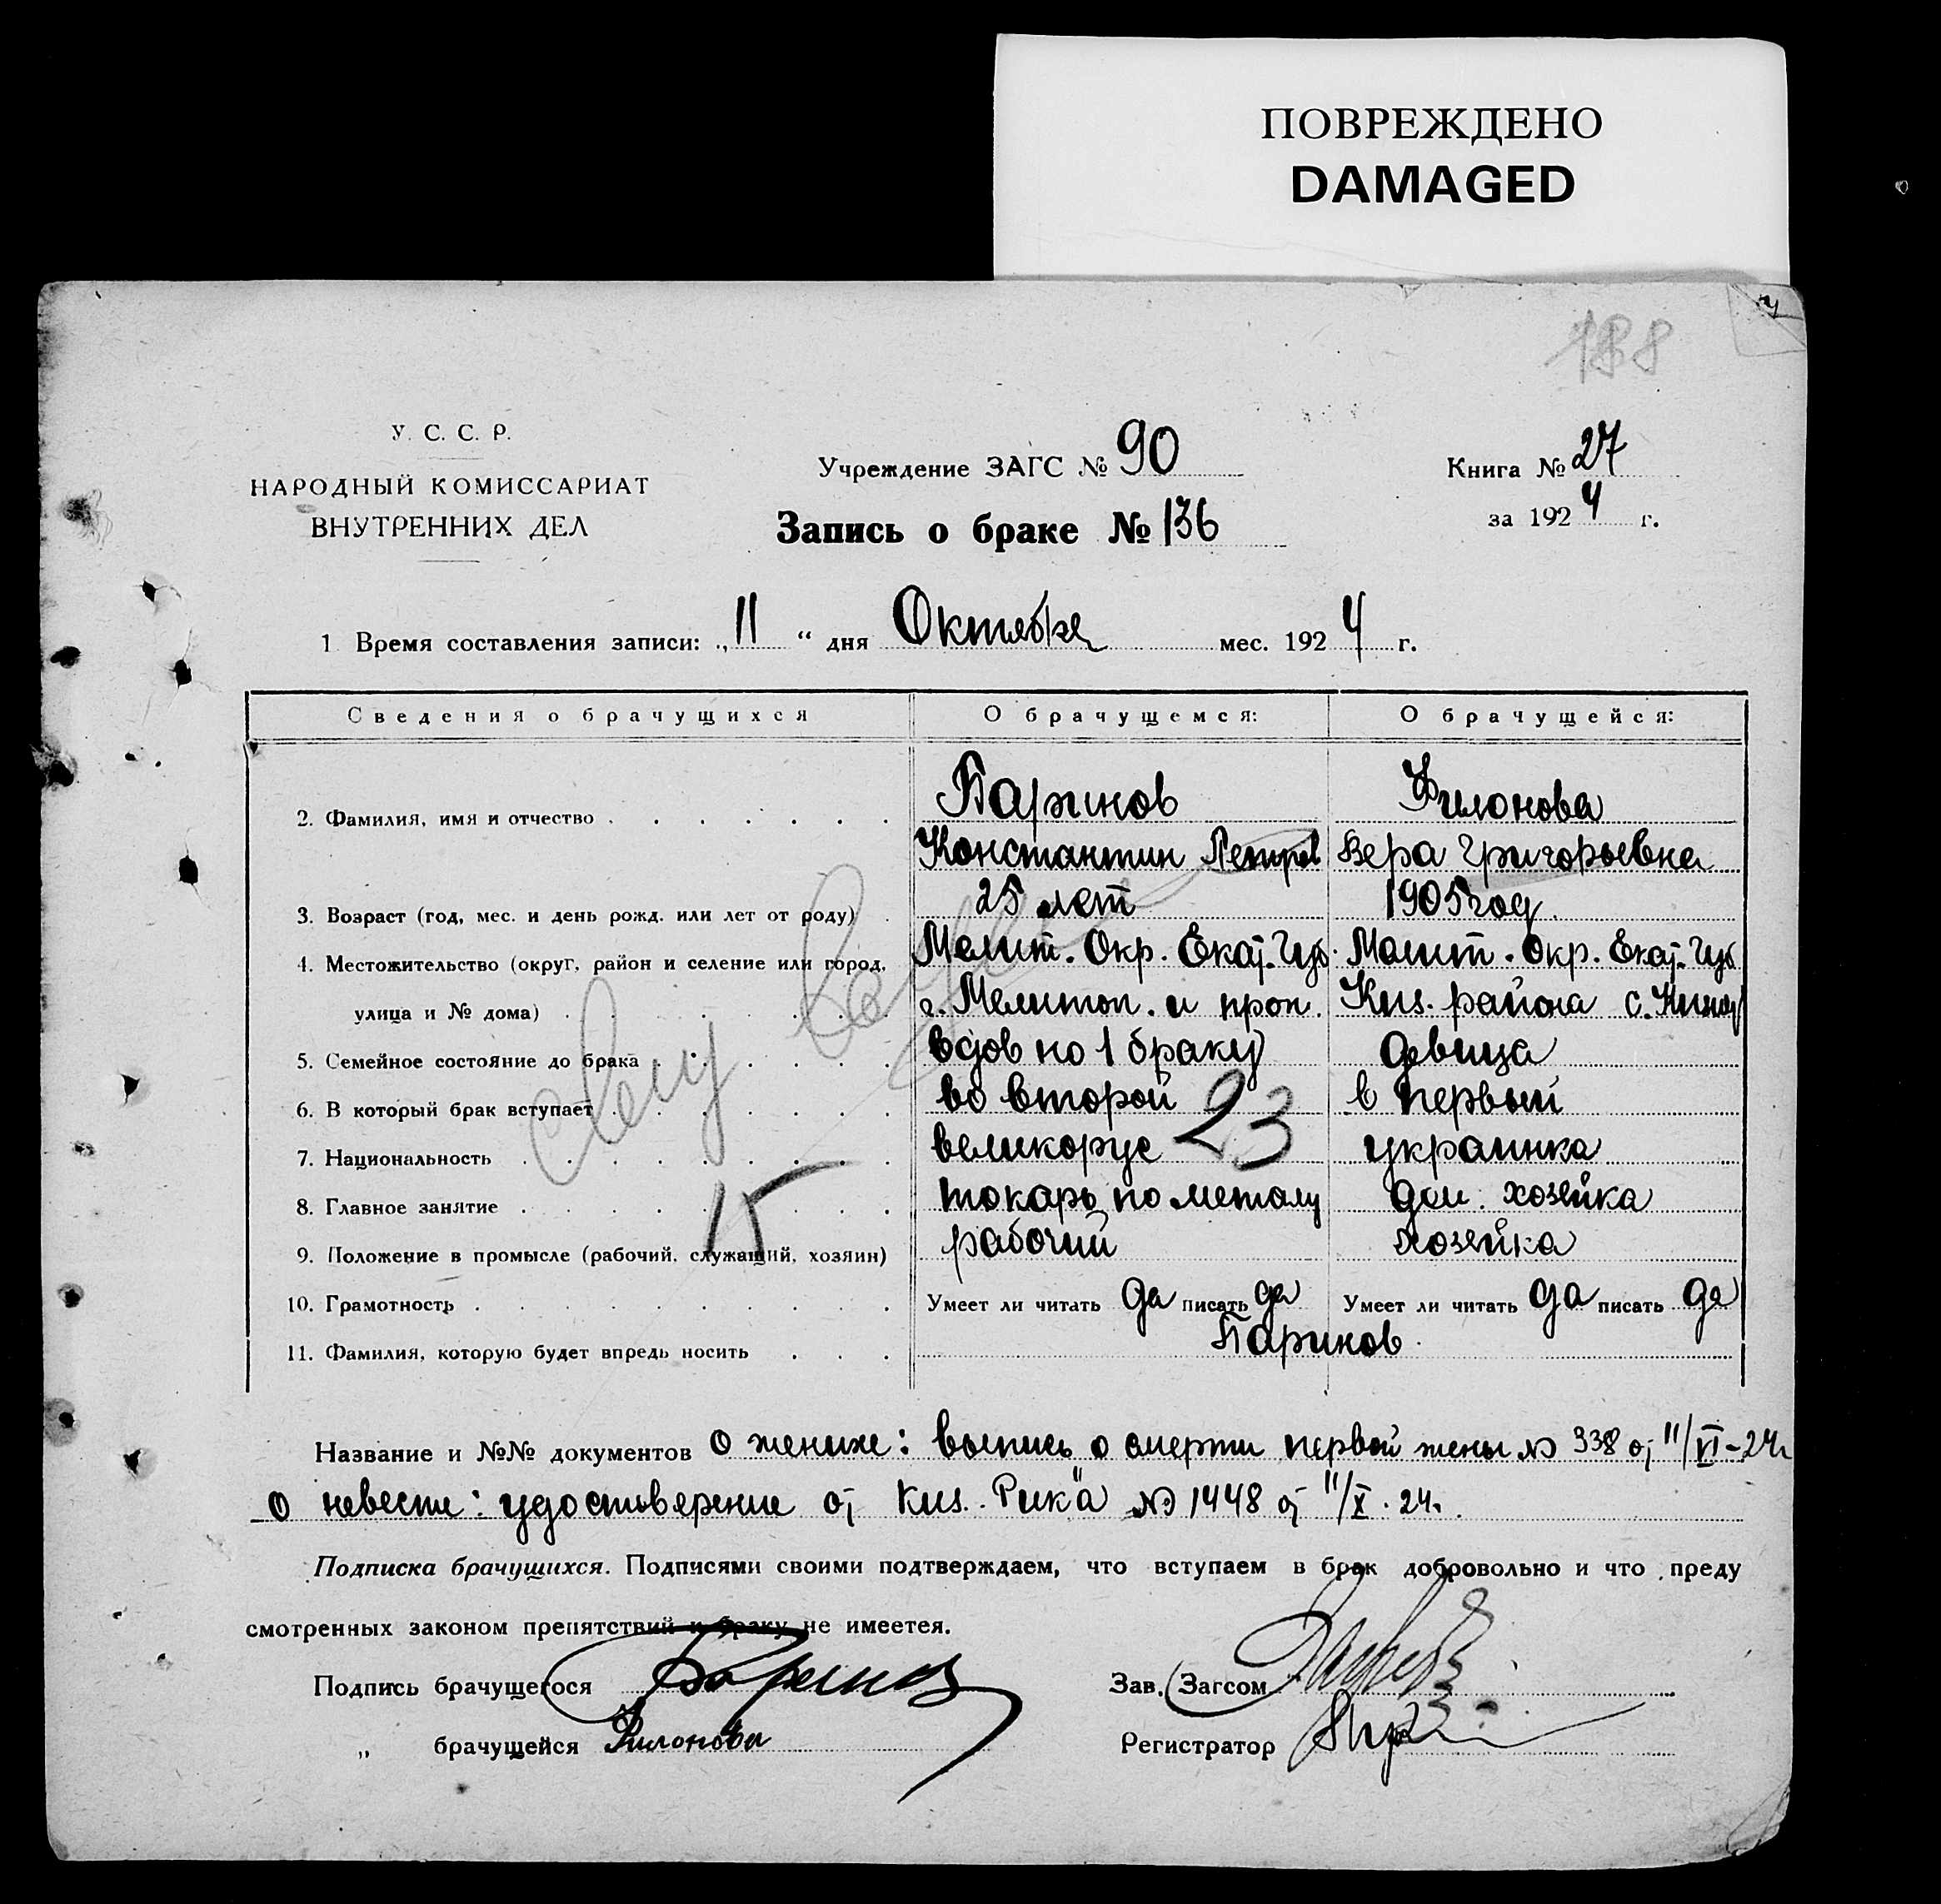 ПОВРЕЖДЕНО
DAMAGED
188
У. С. С. Р.
НАРОДНЫЙ КОМИССАРИАТ
ВНУТРЕННИХ ДЕЛ
Учреждение ЗАГС № 90
Книга № 27
Запись о браке № 136
за 1924 г.
1 Время составления записи: „11“ дня Октября мес. 1924 г.
Сведения о брачущихся О брачущемся: О брачущейся:
2. Фамилия, имя и отчество Баринов Филонова
Константин Петров Вера Григорьевна
3. Возраст (год, мес. и день рожд. или лет от роду) 25 лет 1905 год.
4. Местожительство (округ, район и селение или город, Мелит. Окр. Екат. Губ. Мелит. Окр. Екат. Губ
улица и № дома) г. Мелитоп. и проп. Киз. района с.
5. Семейное состояние до брака вдов по 1 браку девица
6. В который брак вступает во второй в первый
23
7. Национальность великорус украинка
8. Главное занятие токарь по металу дом. хозейка
15
9. Положение в промысле (рабочий, служащий, хозяин) рабочий хозейка
10. Грамотность Умеет ли читать да писать да Умеет ли читать да писать да
11. Фамилия, которую будет впредь носить Баринов.
Название и №№ документов О женихе: выпись о смерти первой жены № 338 от 11/VI-24г
О невесте: удостоверение от Киз. Рик'а № 1448 от 11/X. 24г.
Подписка брачущихся. Подписями своими подтверждаем, что вступаем в брак добровольно и что преду
смотренных законом препятствий к браку не имеетея.
Подпись брачущегося Баринов Зав. Загсом
„ брачущейся Филонова Регистратор